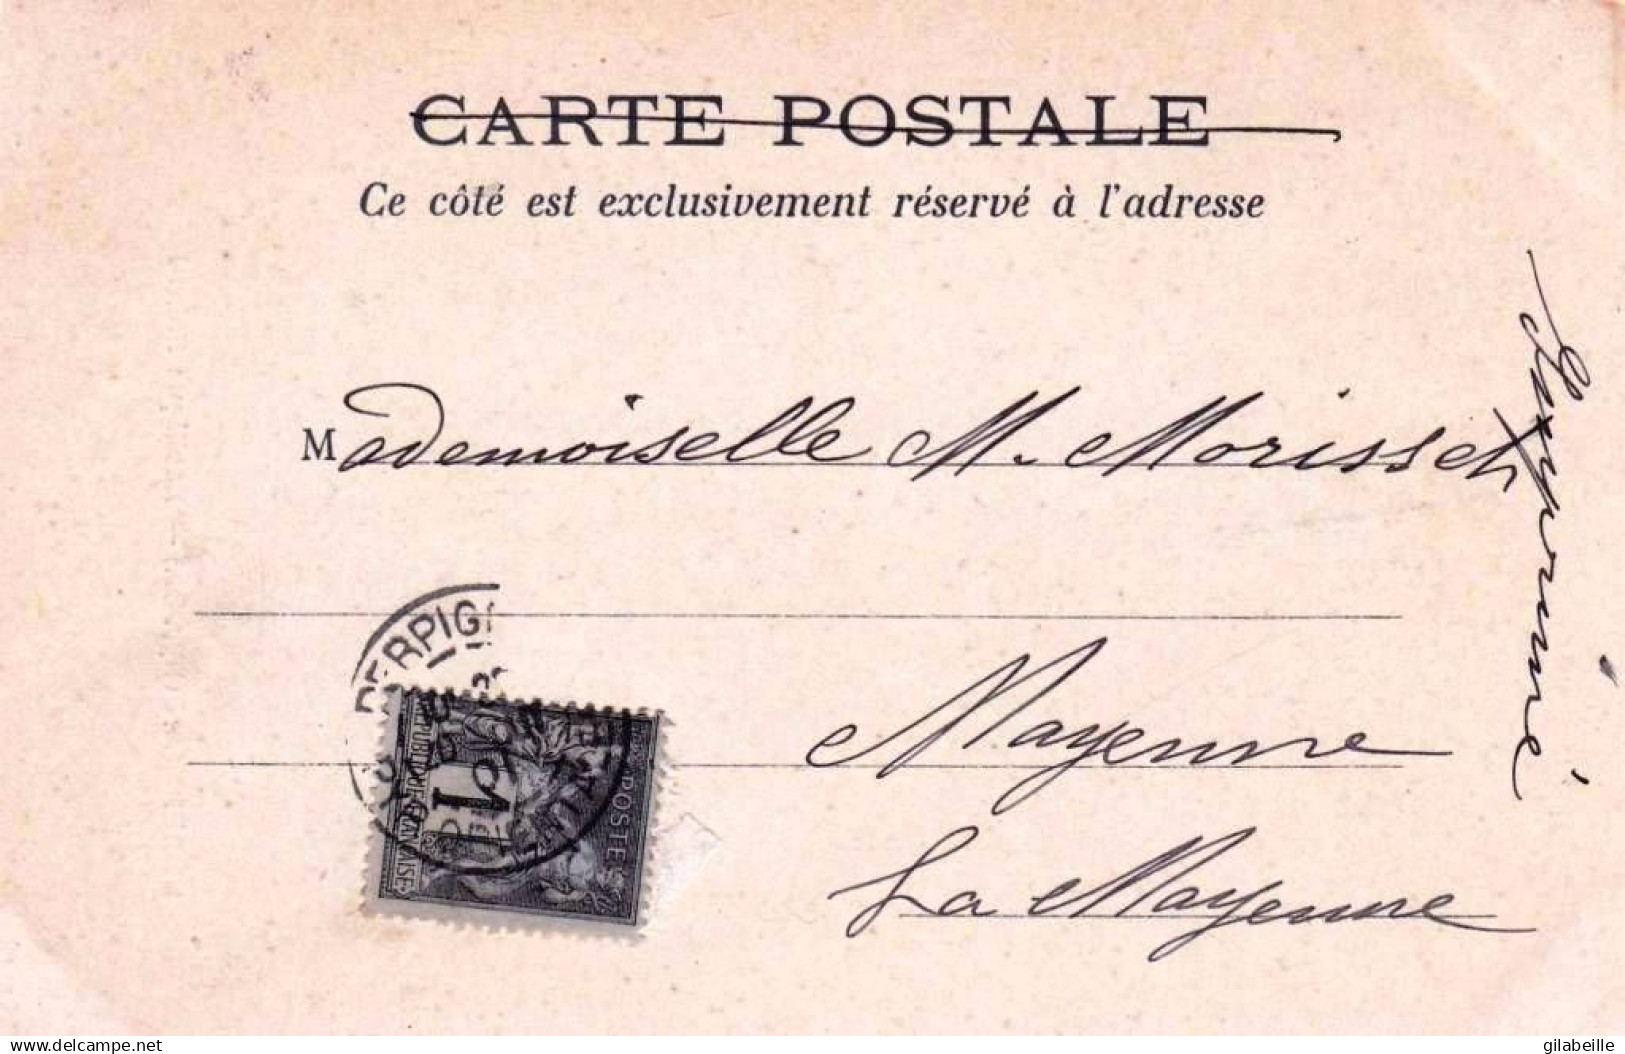 CARTE POSTALE
Ce côté est exclusivement réservé à l'adresse
Mademoiselle M. Morisset
Imprimé
Mayenne
La Mayenne
PERPIGN
RÉPUBLIQUE FRANÇAISE
1
POSTES
delcampe.net
gilabeille